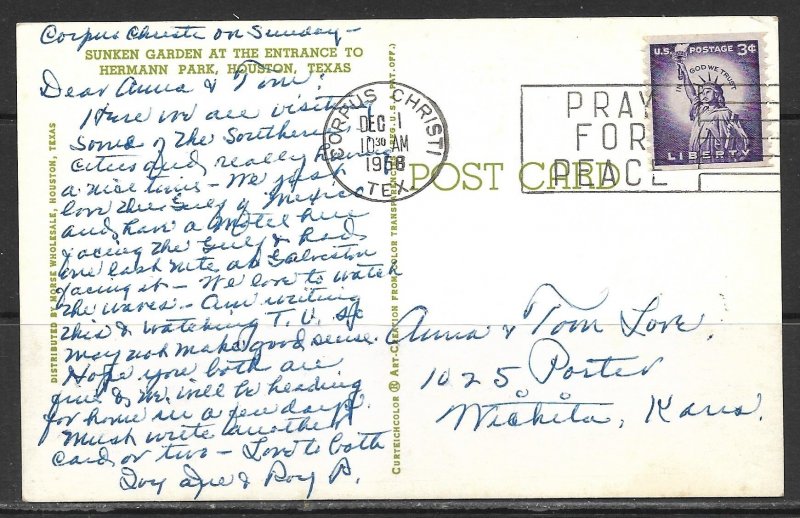 Corpus Christi on Sunday -
SUNKEN GARDEN AT THE ENTRANCE TO
HERMANN PARK, HOUSTON, TEXAS
Dear Anna & Tom:
Here we are visiting
some of the Southern
cities and really having
a nice time - We just
love the Gulf of Mexico
and have a Motel here
facing the Gulf & had
one last nite at Galveston
facing it - We love to watch
the waves - Am writing
this & watching T.V. so
may not make good sense.
Hope you both are
fine & we will be heading
for home in a few days.
Must write another
card or two - Love to both
& Roy P.
DISTRIBUTED BY MORSE WHOLESALE, HOUSTON, TEXAS
CURTEICHCOLOR ® ART-CREATION FROM COLOR TRANSPARENCY REG. U.S. PAT. OFF.)
CORPUS CHRISTI
DEC
10 30 AM
1958
TEX.
POST CARD
PRAY
FOR
PEACE
U.S. POSTAGE 3¢
IN GOD WE TRUST
LIBERTY
Anna & Tom Love
1025 Porter
Wichita, Kans.